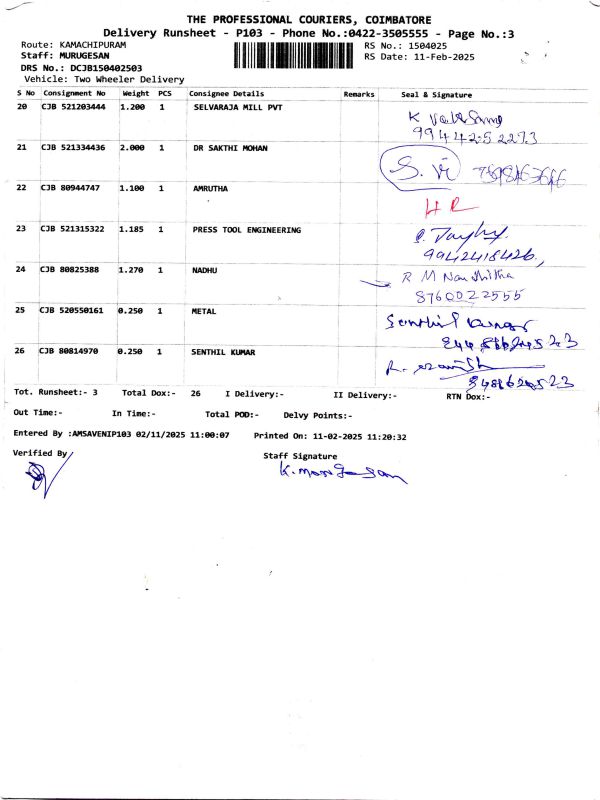 THE PROFESSIONAL COURIERS, COIMBATORE
Delivery Runsheet - P103 - Phone No.:0422-3505555 - Page No.:3
Route: KAMACHIPURAM RS No.: 1504025
Staff: MURUGESAN RS Date: 11-Feb-2025
DRS No.: DCJB150402503
Vehicle: Two Wheeler Delivery
S No Consignment No Weight PCS Consignee Details Remarks Seal & Signature
20 CJB 521203444 1.200 1 SELVARAJA MILL PVT
K
9944252273
21 CJB 521334436 2.000 1 DR SAKTHI MOHAN
22 CJB 80944747 1.100 1 AMRUTHA
HR
23 CJB 521315322 1.185 1 PRESS TOOL ENGINEERING
9942418426,
24 CJB 80825388 1.270 1 NADHU
R M Nandhitha
8760022555
25 CJB 520550161 0.250 1 METAL
Senthil Kumar
26 CJB 80814970 0.250 1 SENTHIL KUMAR
R.
Tot. Runsheet:- 3 Total Dox:- 26 I Delivery:- II Delivery:- RTN Dox:-
Out Time:- In Time:- Total POD:- Delvy Points:-
Entered By :AMSAVENIP103 02/11/2025 11:00:07 Printed On: 11-02-2025 11:20:32
Verified By Staff Signature
K. Murugesan